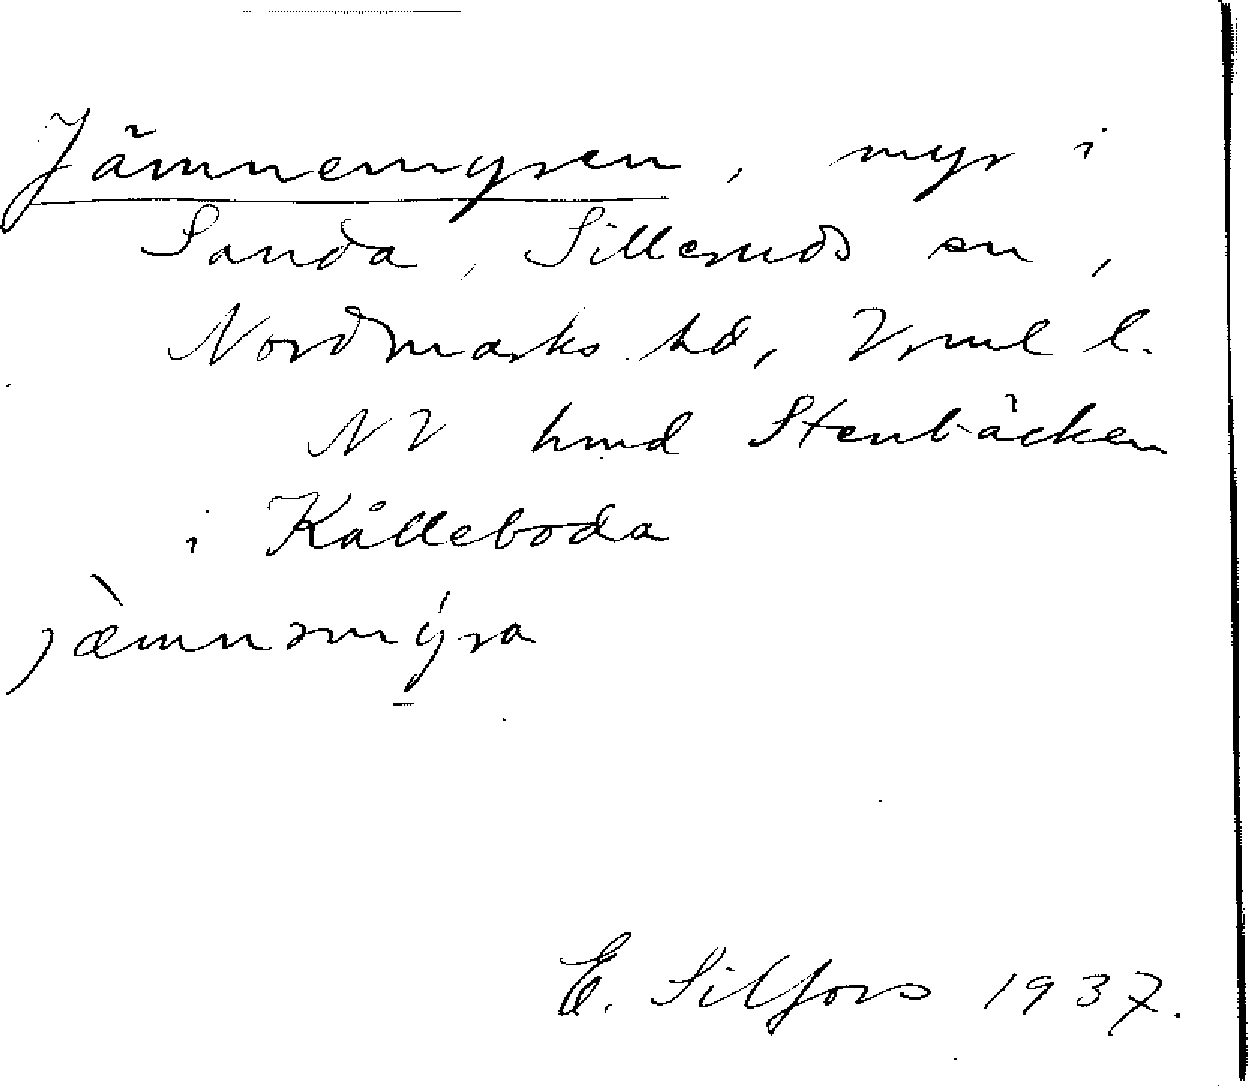 Jämnemyren, myr i
Sanda, Silleruds sn,
Nordmarks hd, Vrml l.
NV hmd Stenbäcken
i Kålleboda
jæ̀mnəmýra
E. Silfors 1937.